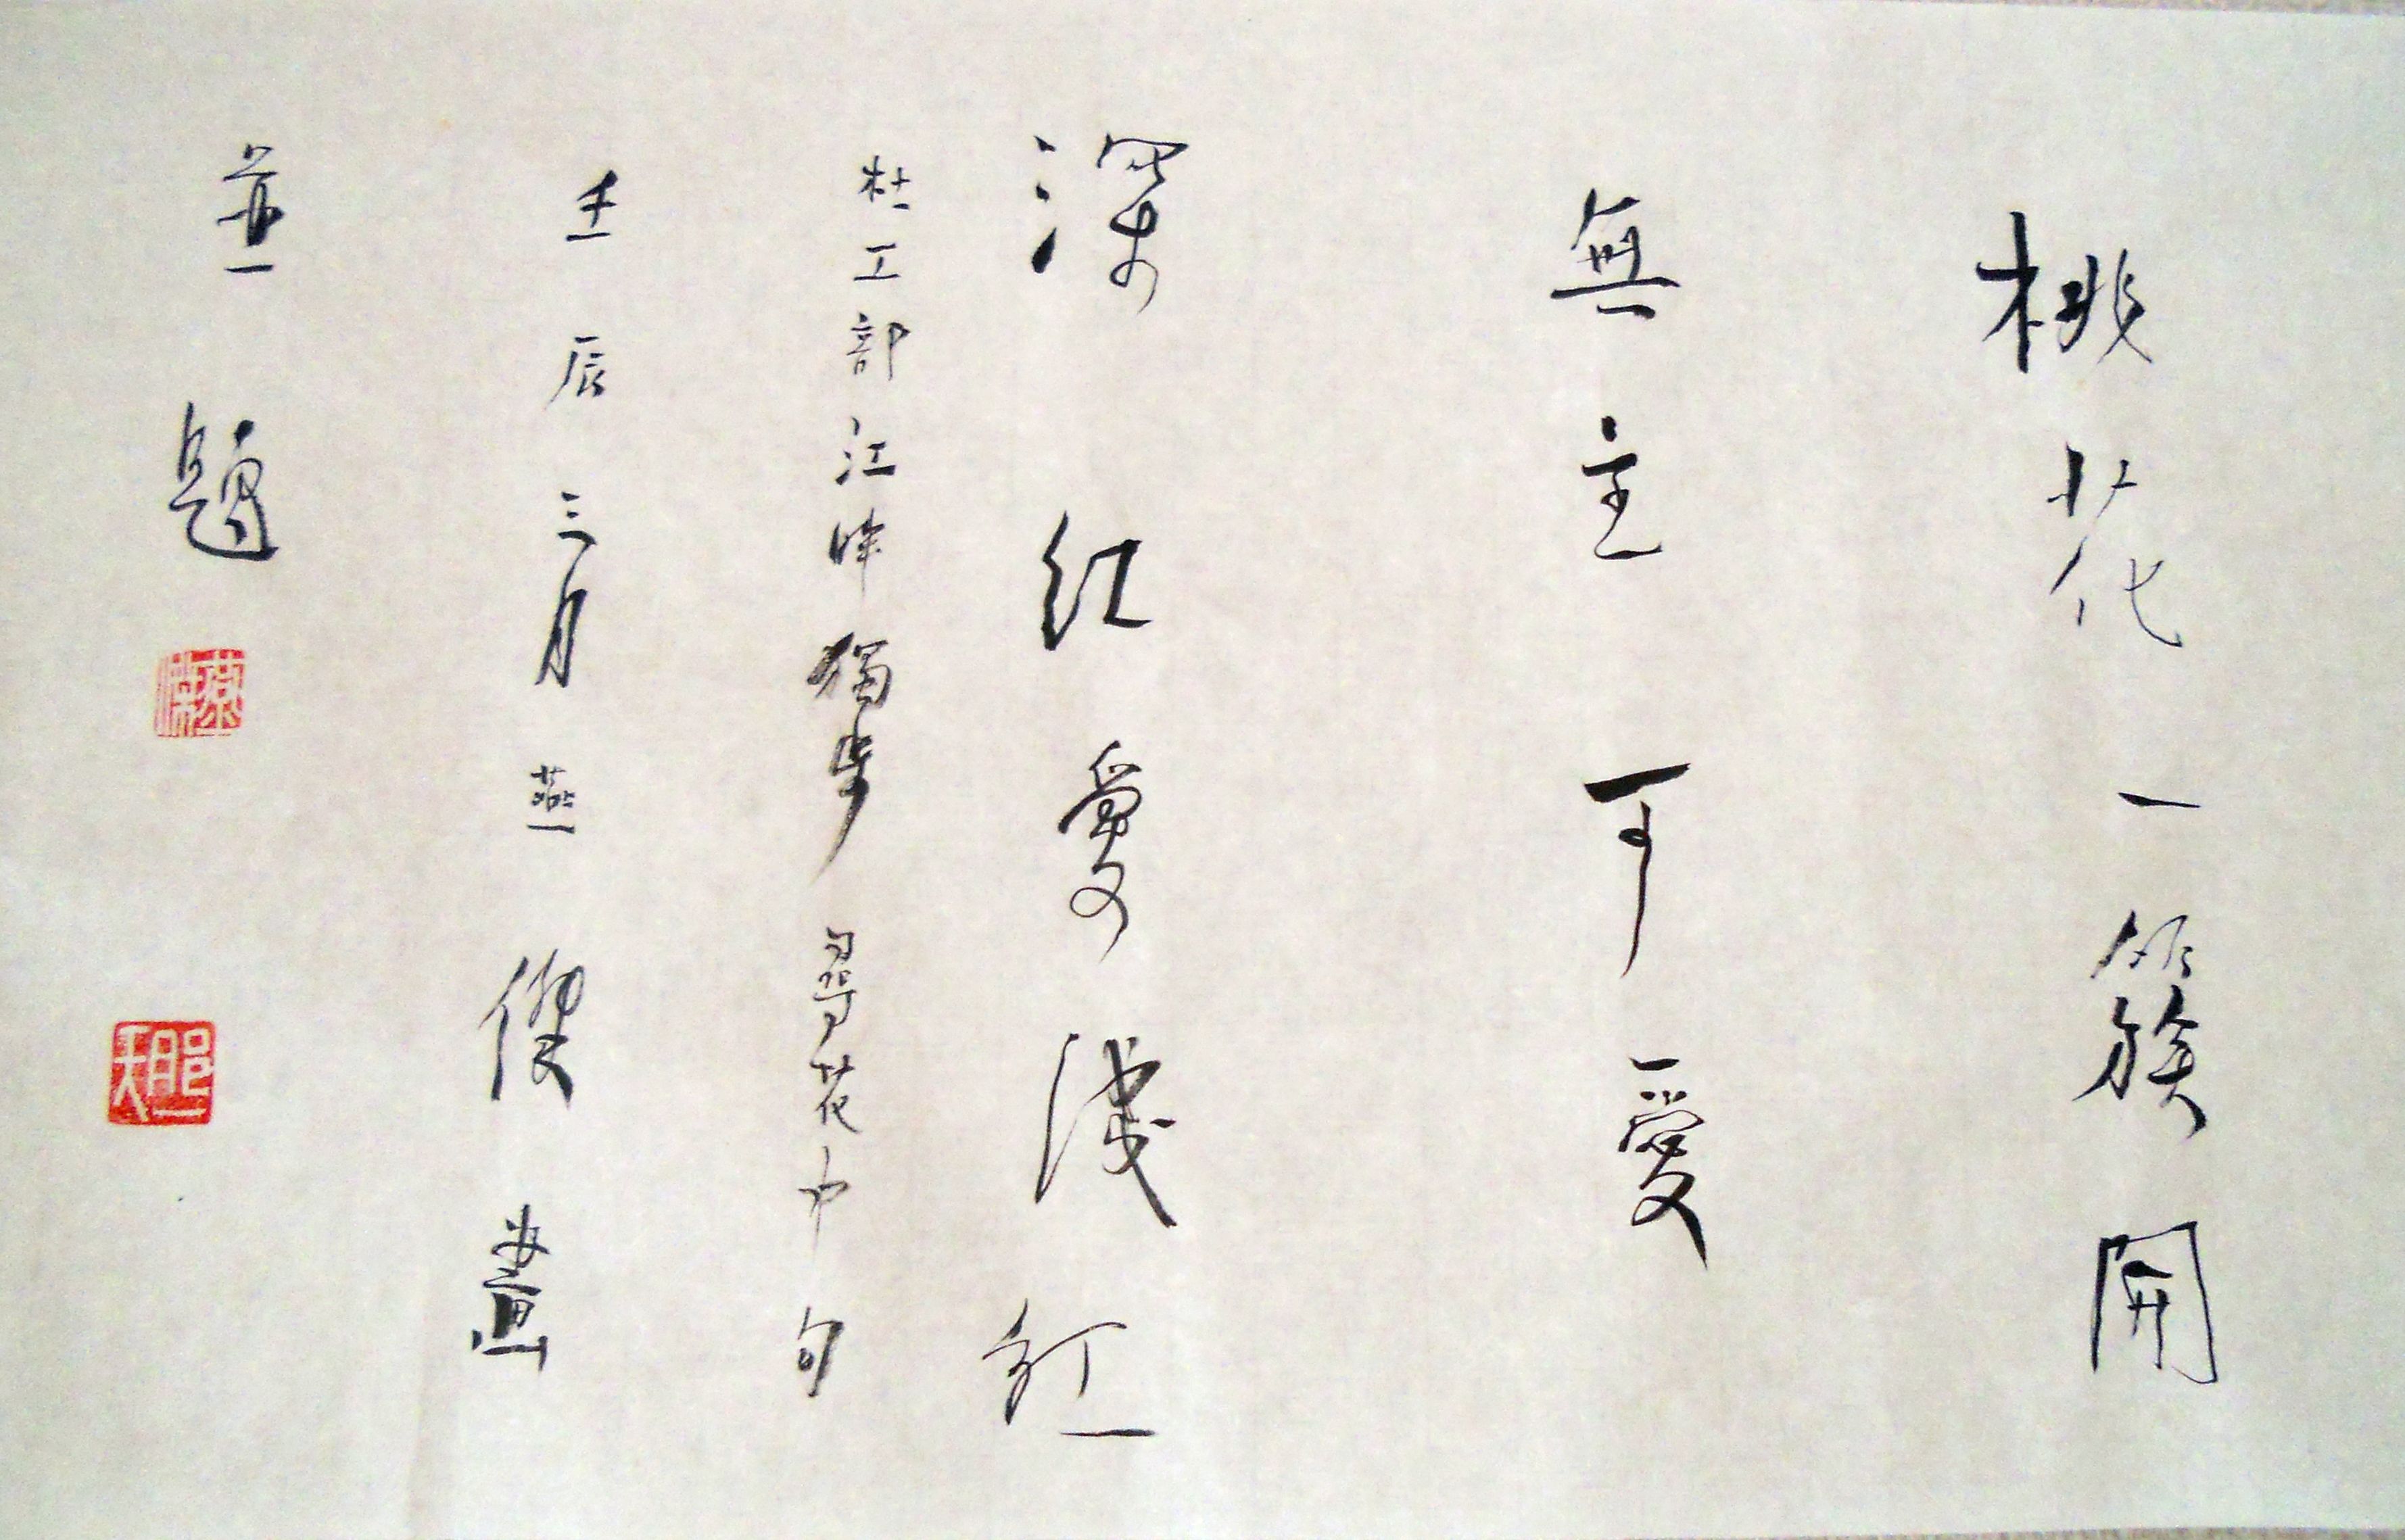 桃花一簇開
無主可愛
深紅愛淺紅
杜工部江畔獨步尋花中句
壬辰三月燕傑畫
並題
燕傑